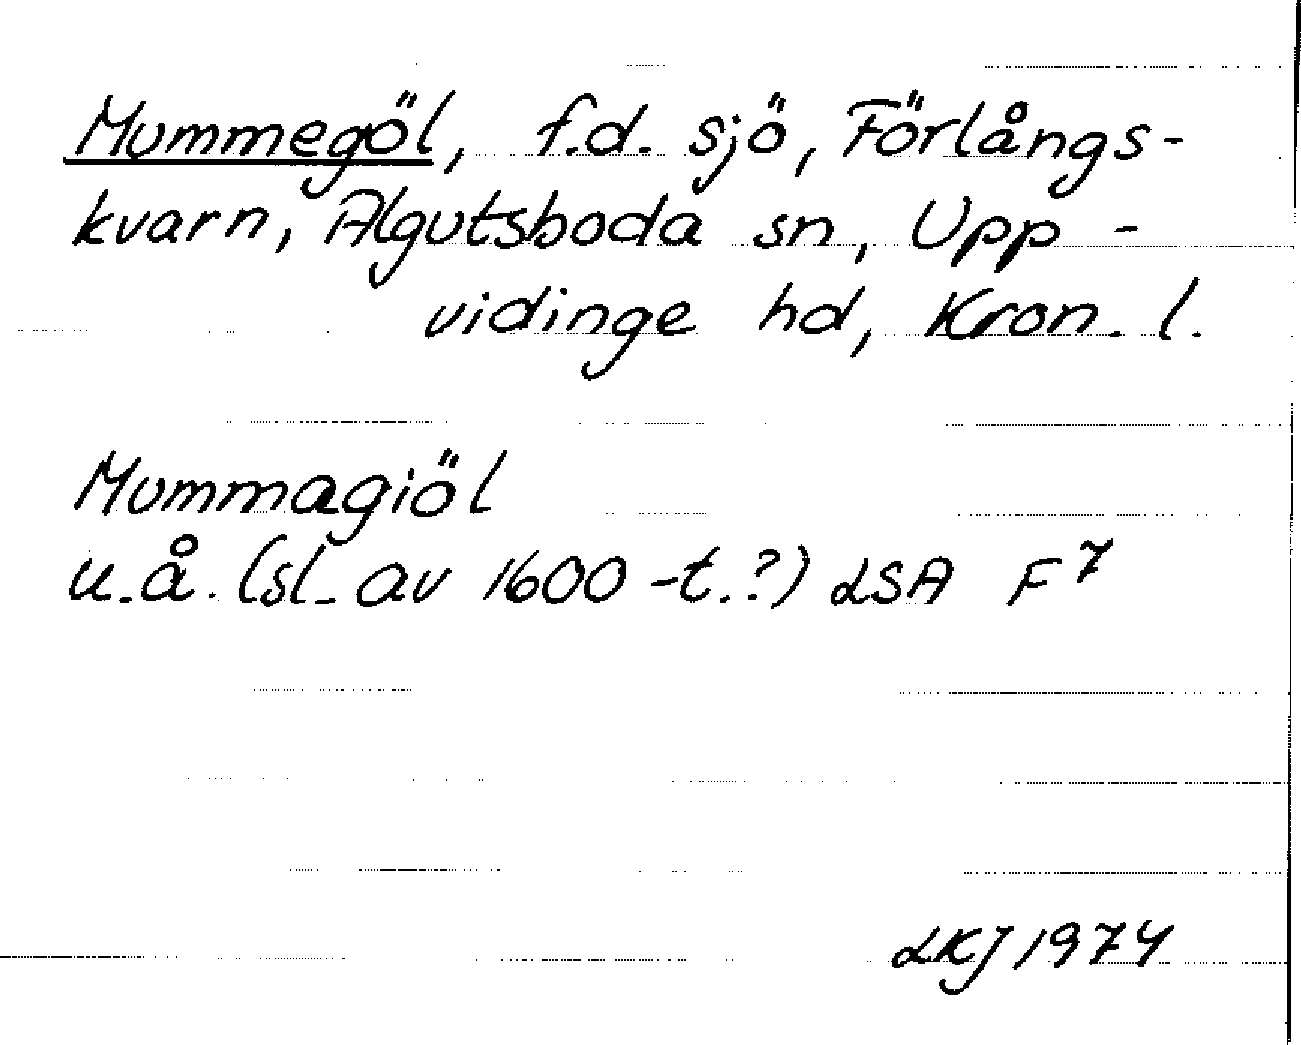 Mummegöl, f.d. sjö, Förlångs-
kvarn, Algutsboda sn, Upp-
vidinge hd, Kron. l.
Mummagiöl
u.å. (sl. av 1600-t.?) LSA F7
LKJ 1974